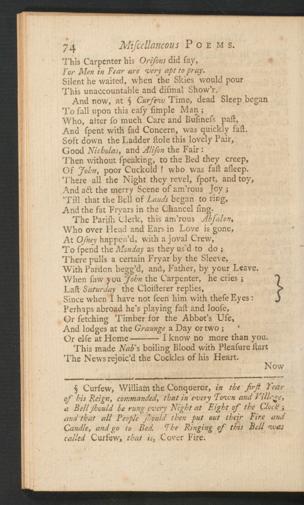 74 Miscellaneous POEMS.
This Carpenter his Orisons did say,
For Men in Fear are very apt to pray.
Silent he waited, when the Skies would pour
This unaccountable and dismal Show'r.
And now, at § Curfew Time, dead Sleep began
To fall upon this easy simple Man;
Who, after so much Care and Business past,
And spent with sad Concern, was quickly fast.
Soft down the Ladder stole this lovely Pair,
Good Nicholas, and Alison the Fair:
Then without speaking, to the Bed they creep,
Of John, poor Cuckold! who was fast asleep.
There all the Night they revel, sport, and toy,
And act the merry Scene of am'rous Joy;
'Till that the Bell of Lauds began to ring,
And the fat Fryars in the Chancel sing.
The Parish Clerk, this am'rous Absalon,
Who over Head and Ears in Love is gone,
At Osney happen'd, with a jovial Crew,
To spend the Monday as they us'd to do;
There pulls a certain Fryar by the Sleeve,
With Pardon begg'd, and, Father, by your Leave,
When saw you John the Carpenter, he cries;
Last Saturday the Cloisterer replies,
Since when I have not seen him with these Eyes:
Perhaps abroad he's playing fast and loose,
Or fetching Timber for the Abbot's Use,
And lodges at the Graunge a Day or two;
Or else at Home—— I know no more than you.
This made Nab's boiling Blood with Pleasure start
The News rejoic'd the Cockles of his Heart.
Now
§ Curfew, William the Conqueror, in the first Year
of his Reign, commanded, that in every Town and Village,
a Bell should be rung every Night at Eight of the Clock;
and that all People should then put out their Fire and
Candle, and go to Bed. The Ringing of this Bell was
called Curfew, that is, Cover Fire.